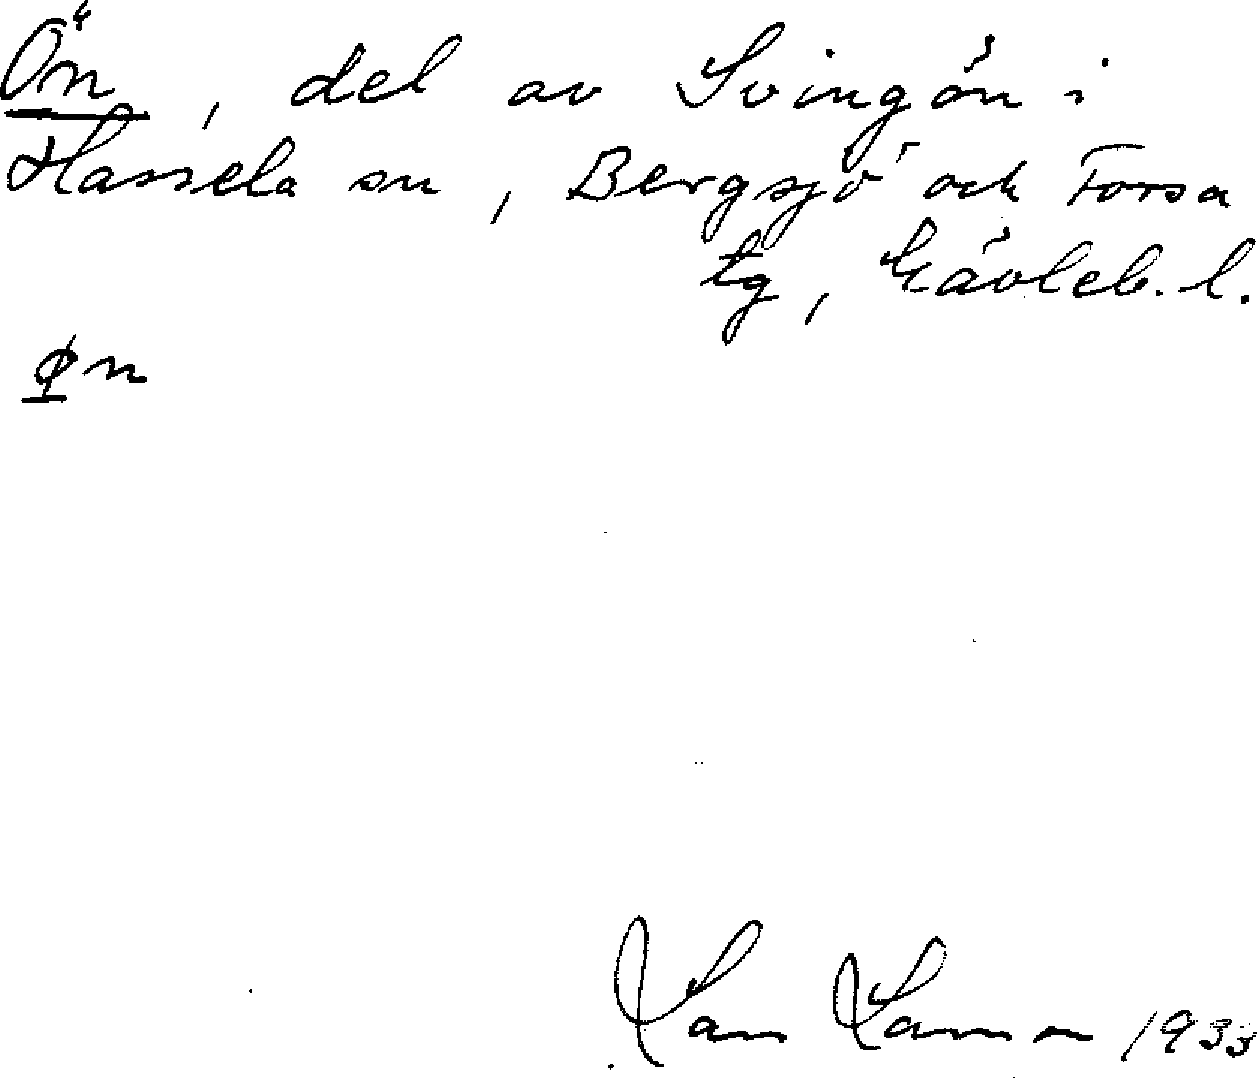 Ön, del av Svingön i
Hassela sn, Bergsjö och Forsa
tg, Gävleb. l.
øn
1933